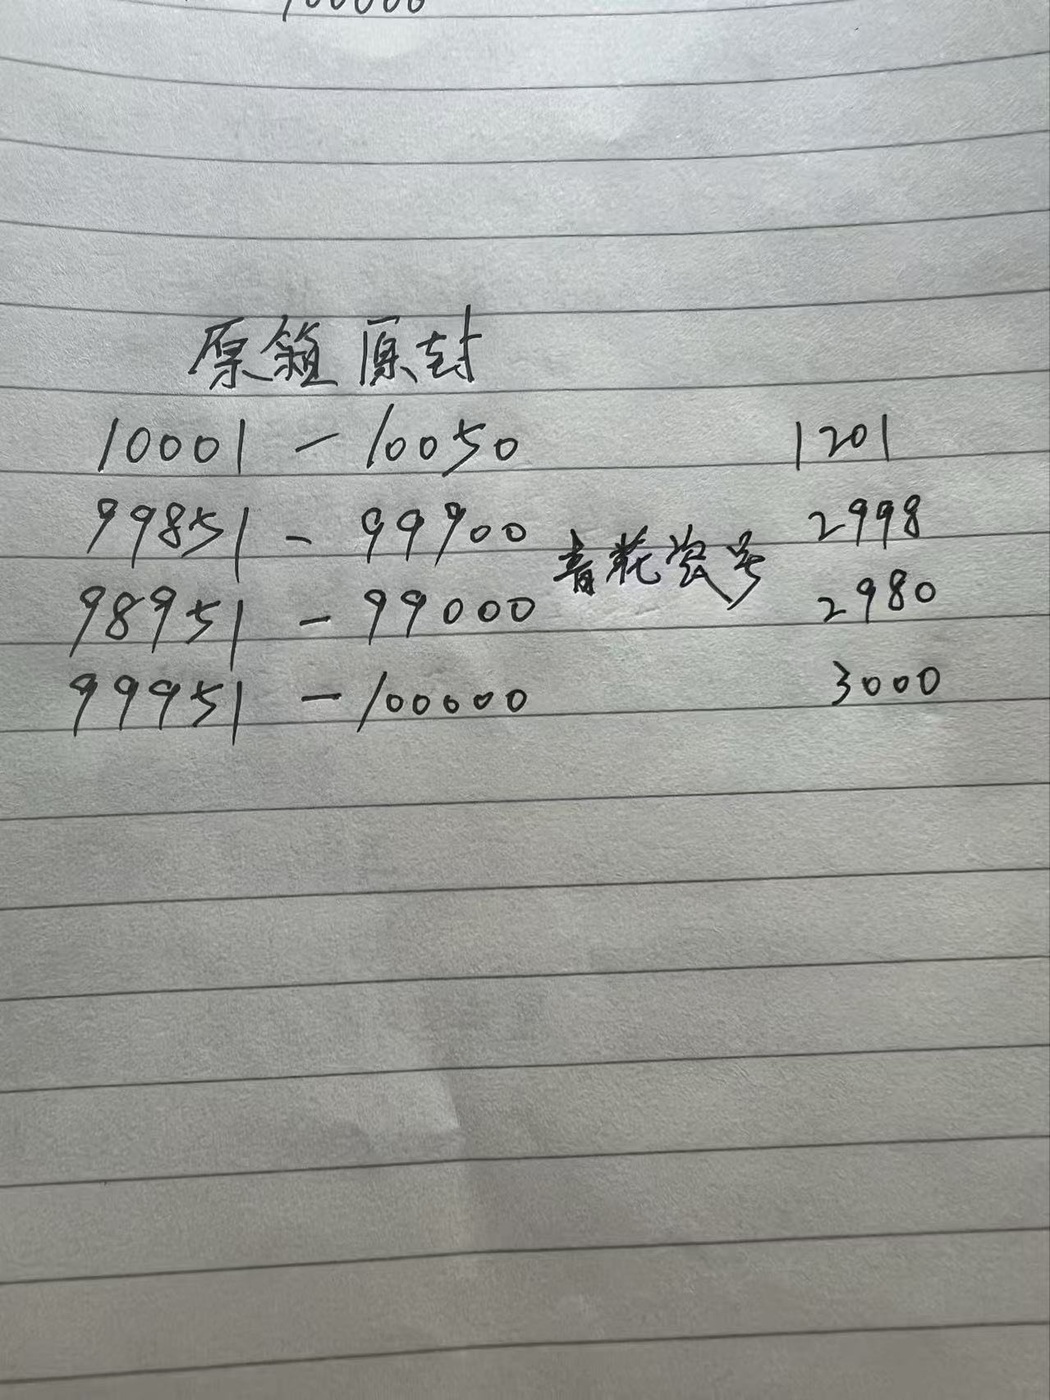 100000
原箱原封
10001 - 10050 1201
99851 - 99900 青花瓷号 2998
98951 - 99000 2980
99951 - 100000 3000